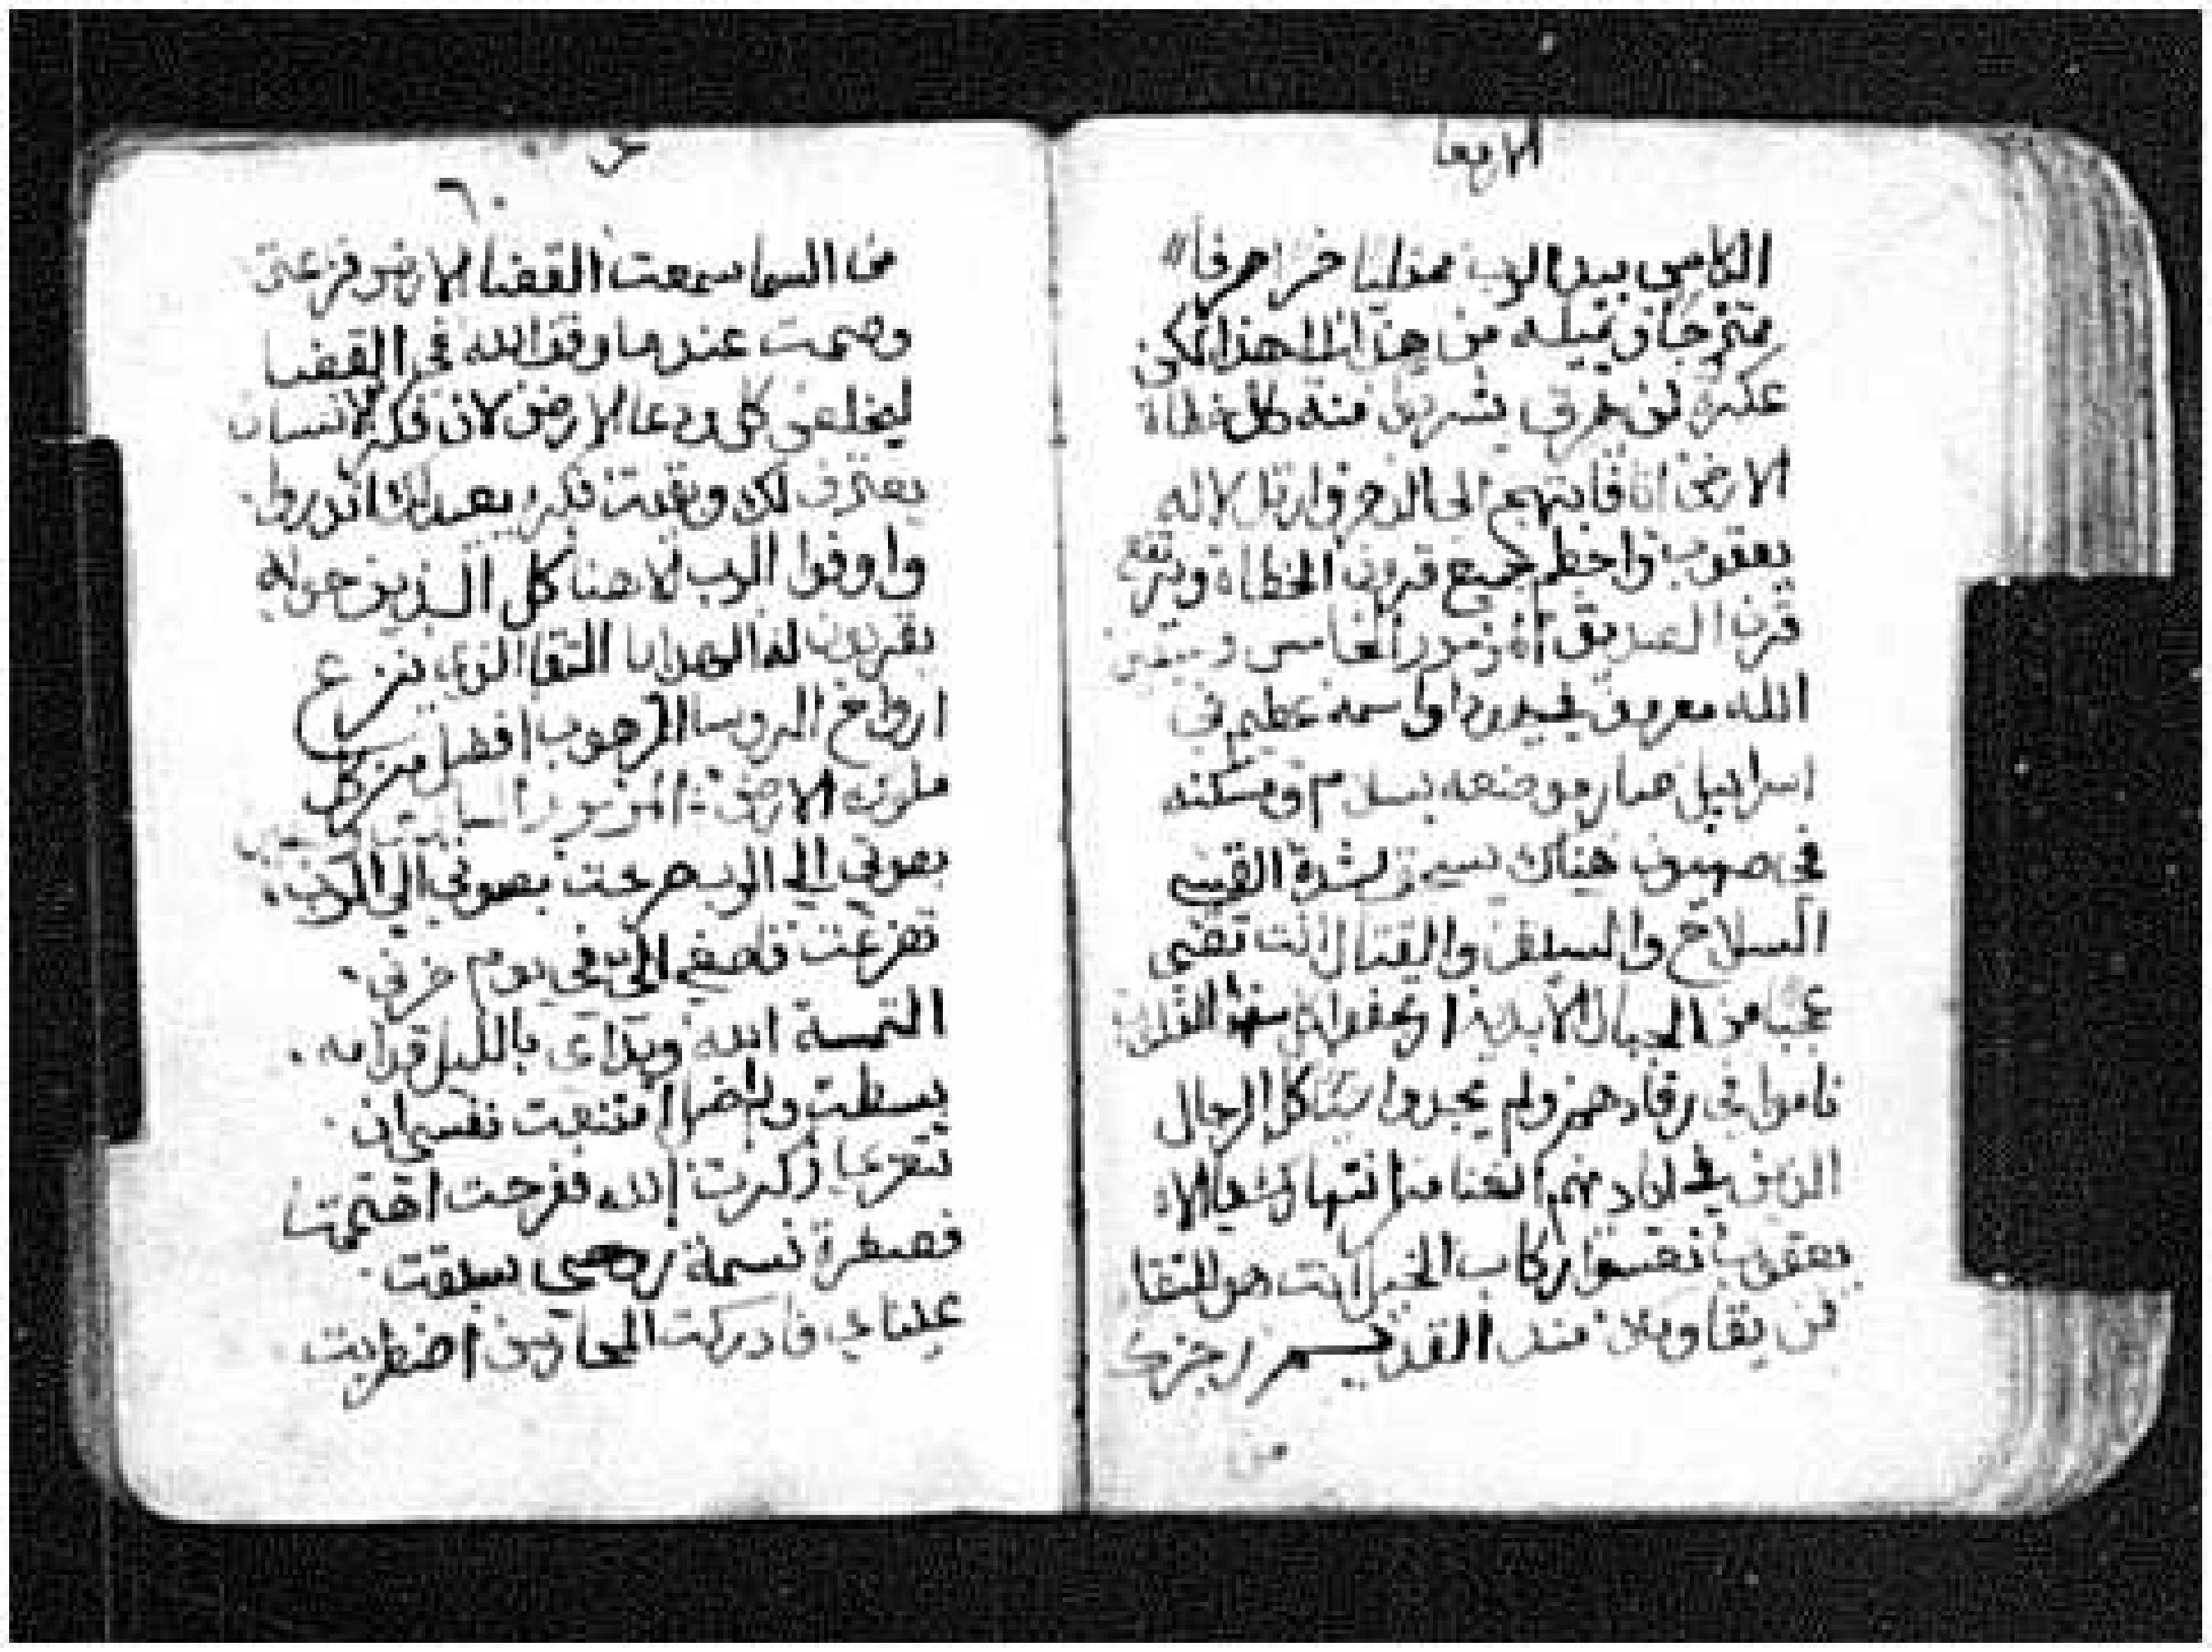 الاربعا
الكاس بيد الرب ممتليا خمرا صرفا
متزجا وتميله من هذا الى هذا لكن
عكره لن تحرق يشربون منه كل خطاة
الارض انا فابتهج الى الدهر وارتل لاله
يعقوب واحطم جميع قرون الخطاة وترتفع
قرن الصديق المزمور الخامس وسبعين
الله معروف في يهودا واسمه عظيم في
اسراييل صار موضعه بسلام ومسكنه
في صهيون هناك يسحق لشدة القسي
السلاح والسيف والقتال انت تضي
عجبا من الجبال الابدية
ناموا في رقادهم ولم يجدوا شيا كل الرجال
الذين في ايديهم الغنا من انتهارك يا اله
يعقوب نعسوا ركاب الخيل انت هو للتقا
لمن يقاومك منذ القديم رجزك
من
٦٠
من السما سمعت القضا الارض فزعت
وصمت عندما وقف الله في القضا
ليخلص كل ودعا الارض لان فكر الانسان
يعترف لك وبقيت فكر يعيد لك اندروا
واوفوا الرب الاهنا كل الذين حوله
يقربون له الهدايا التقا الذي ينزع
ارواح الروسا المرهوب افضل من كل
ملوك الارض المزمور السادس وسبعين
بصوتي الى الرب صرخت بصوتي الى الرب
تضرعت فاصغى الي في يوم حزني
التمسة الله ويداي بالليل قدامه
بسطت ولم اضل امتنعت نفسي ان
تتعزيا ذكرت الله ففرحت اهتممت
فصغرة نسمة روحي سبقت
عيناي فادركت المحارس اضطربت